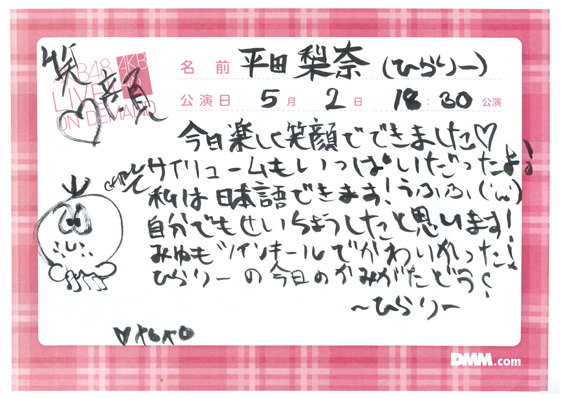 笑顔
AKB48
LIVE!!
ON DEMAND
名前 平田梨奈(ひらりー)
公演日 5月2日 18:30公演
今日楽しく笑顔でできました♡
サイリュームもいっぱいだったよ!
私は日本語できます!うふふ('ω')
自分でもせいちょうしたと思います!
みゆもツインテールでかわいかった!
ひらりーの今日のかみがたどう?
〜ひらりー
♡xoxo
DMM.com